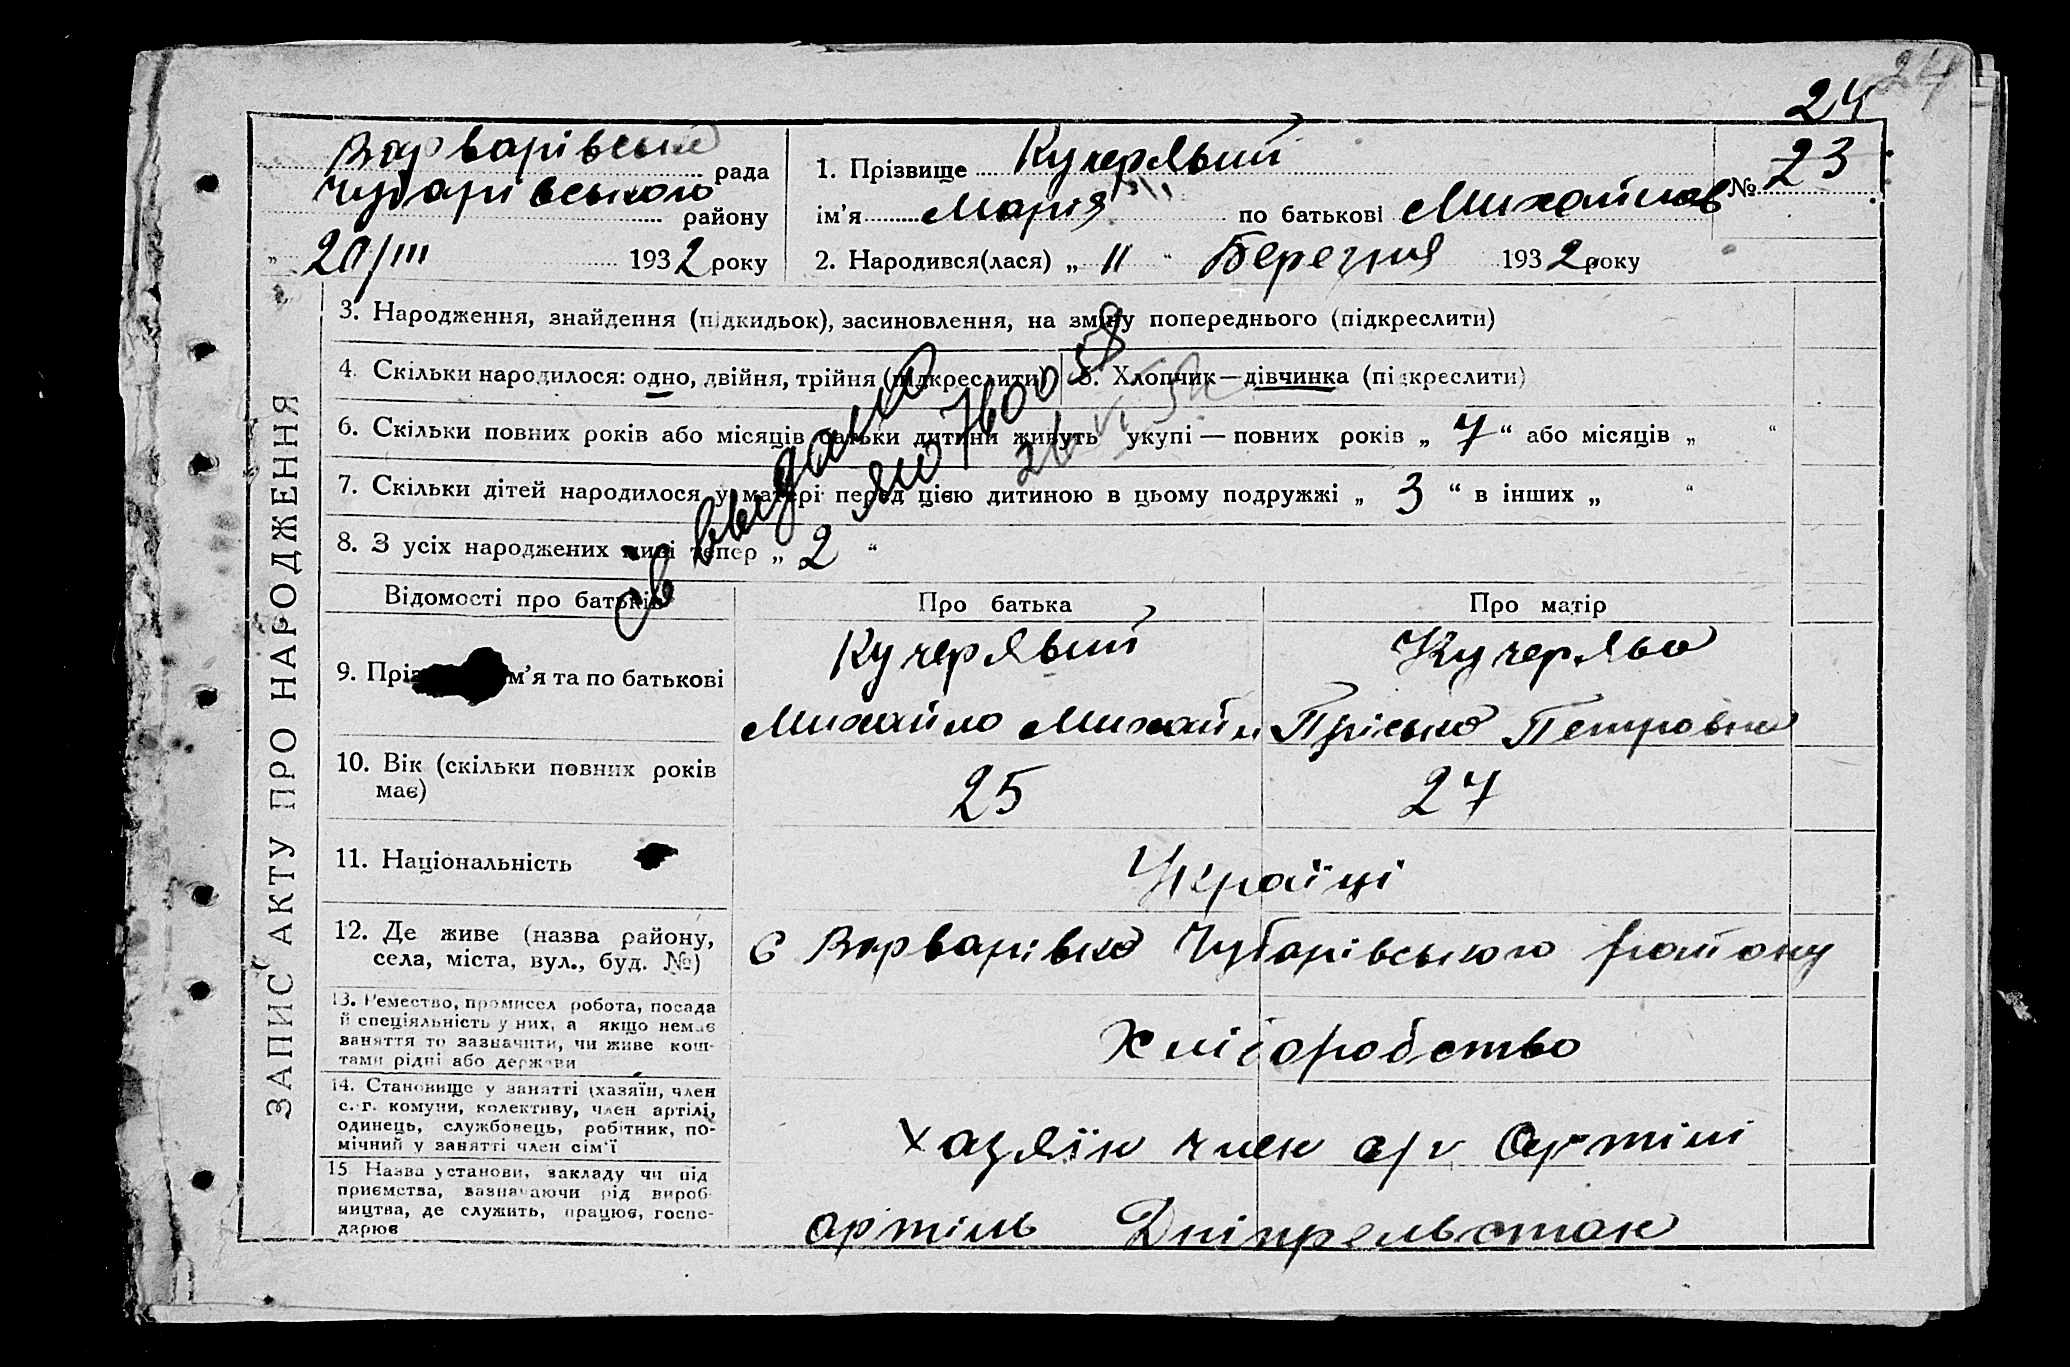 24 24
Варварівська рада
Чубарівського району
„ 20/III 1932 року
1. Прізвище Кучерявий № 23
ім’я Марія по батькові Михайлов
2. Народився(лася) „ 11 “ Березня 1932 року
ЗАПИС АКТУ ПРО НАРОДЖЕННЯ
3. Народження, знайдення (підкидьок), засиновлення, на зміну попереднього (підкреслити)
4. Скільки народилося: одно, двійня, трійня (підкреслити) 5. Хлопчик—дівчинка (підкреслити)
6. Скільки повних років або місяців батьки дитини живуть укупі — повних років „ 7 “ або місяців „ “
7. Скільки дітей народилося у матері перед цією дитиною в цьому подружжі „ 3 “ в інших „ “
8. З усіх народжених живі тепер „ 2 “
св выдано
ЯЮ 760058
26 VI 52
Відомості про батьків Про батька Про матір
9. Прізвище, ім’я та по батькові
Кучерявий Кучерява
Михайло Михайл Пріська Петровна
10. Вік (скільки повних років
має)
25 27
11. Національність Україці
12. Де живе (назва району,
села, міста, вул., буд. №)
с Варварівка Чубарівського району
13. Ремество, промисел робота, посада
й спеціяльність у них, а якщо немає
заняття то зазначити, чи живе кош-
тами рідні або держави
Хліборобство
14. Становище у занятті (хазяїн, член
с.-г. комуни, колективу, член артілі,
одинець, службовець, робітник, по-
мічний у занятті член сім’ї
хазяїн член с/г Артілі
15. Назва установи, закладу чи під
приємства, зазначаючи рід вироб-
ництва, де служить, працює, госпо-
дарює
артіль Дніпрельстан